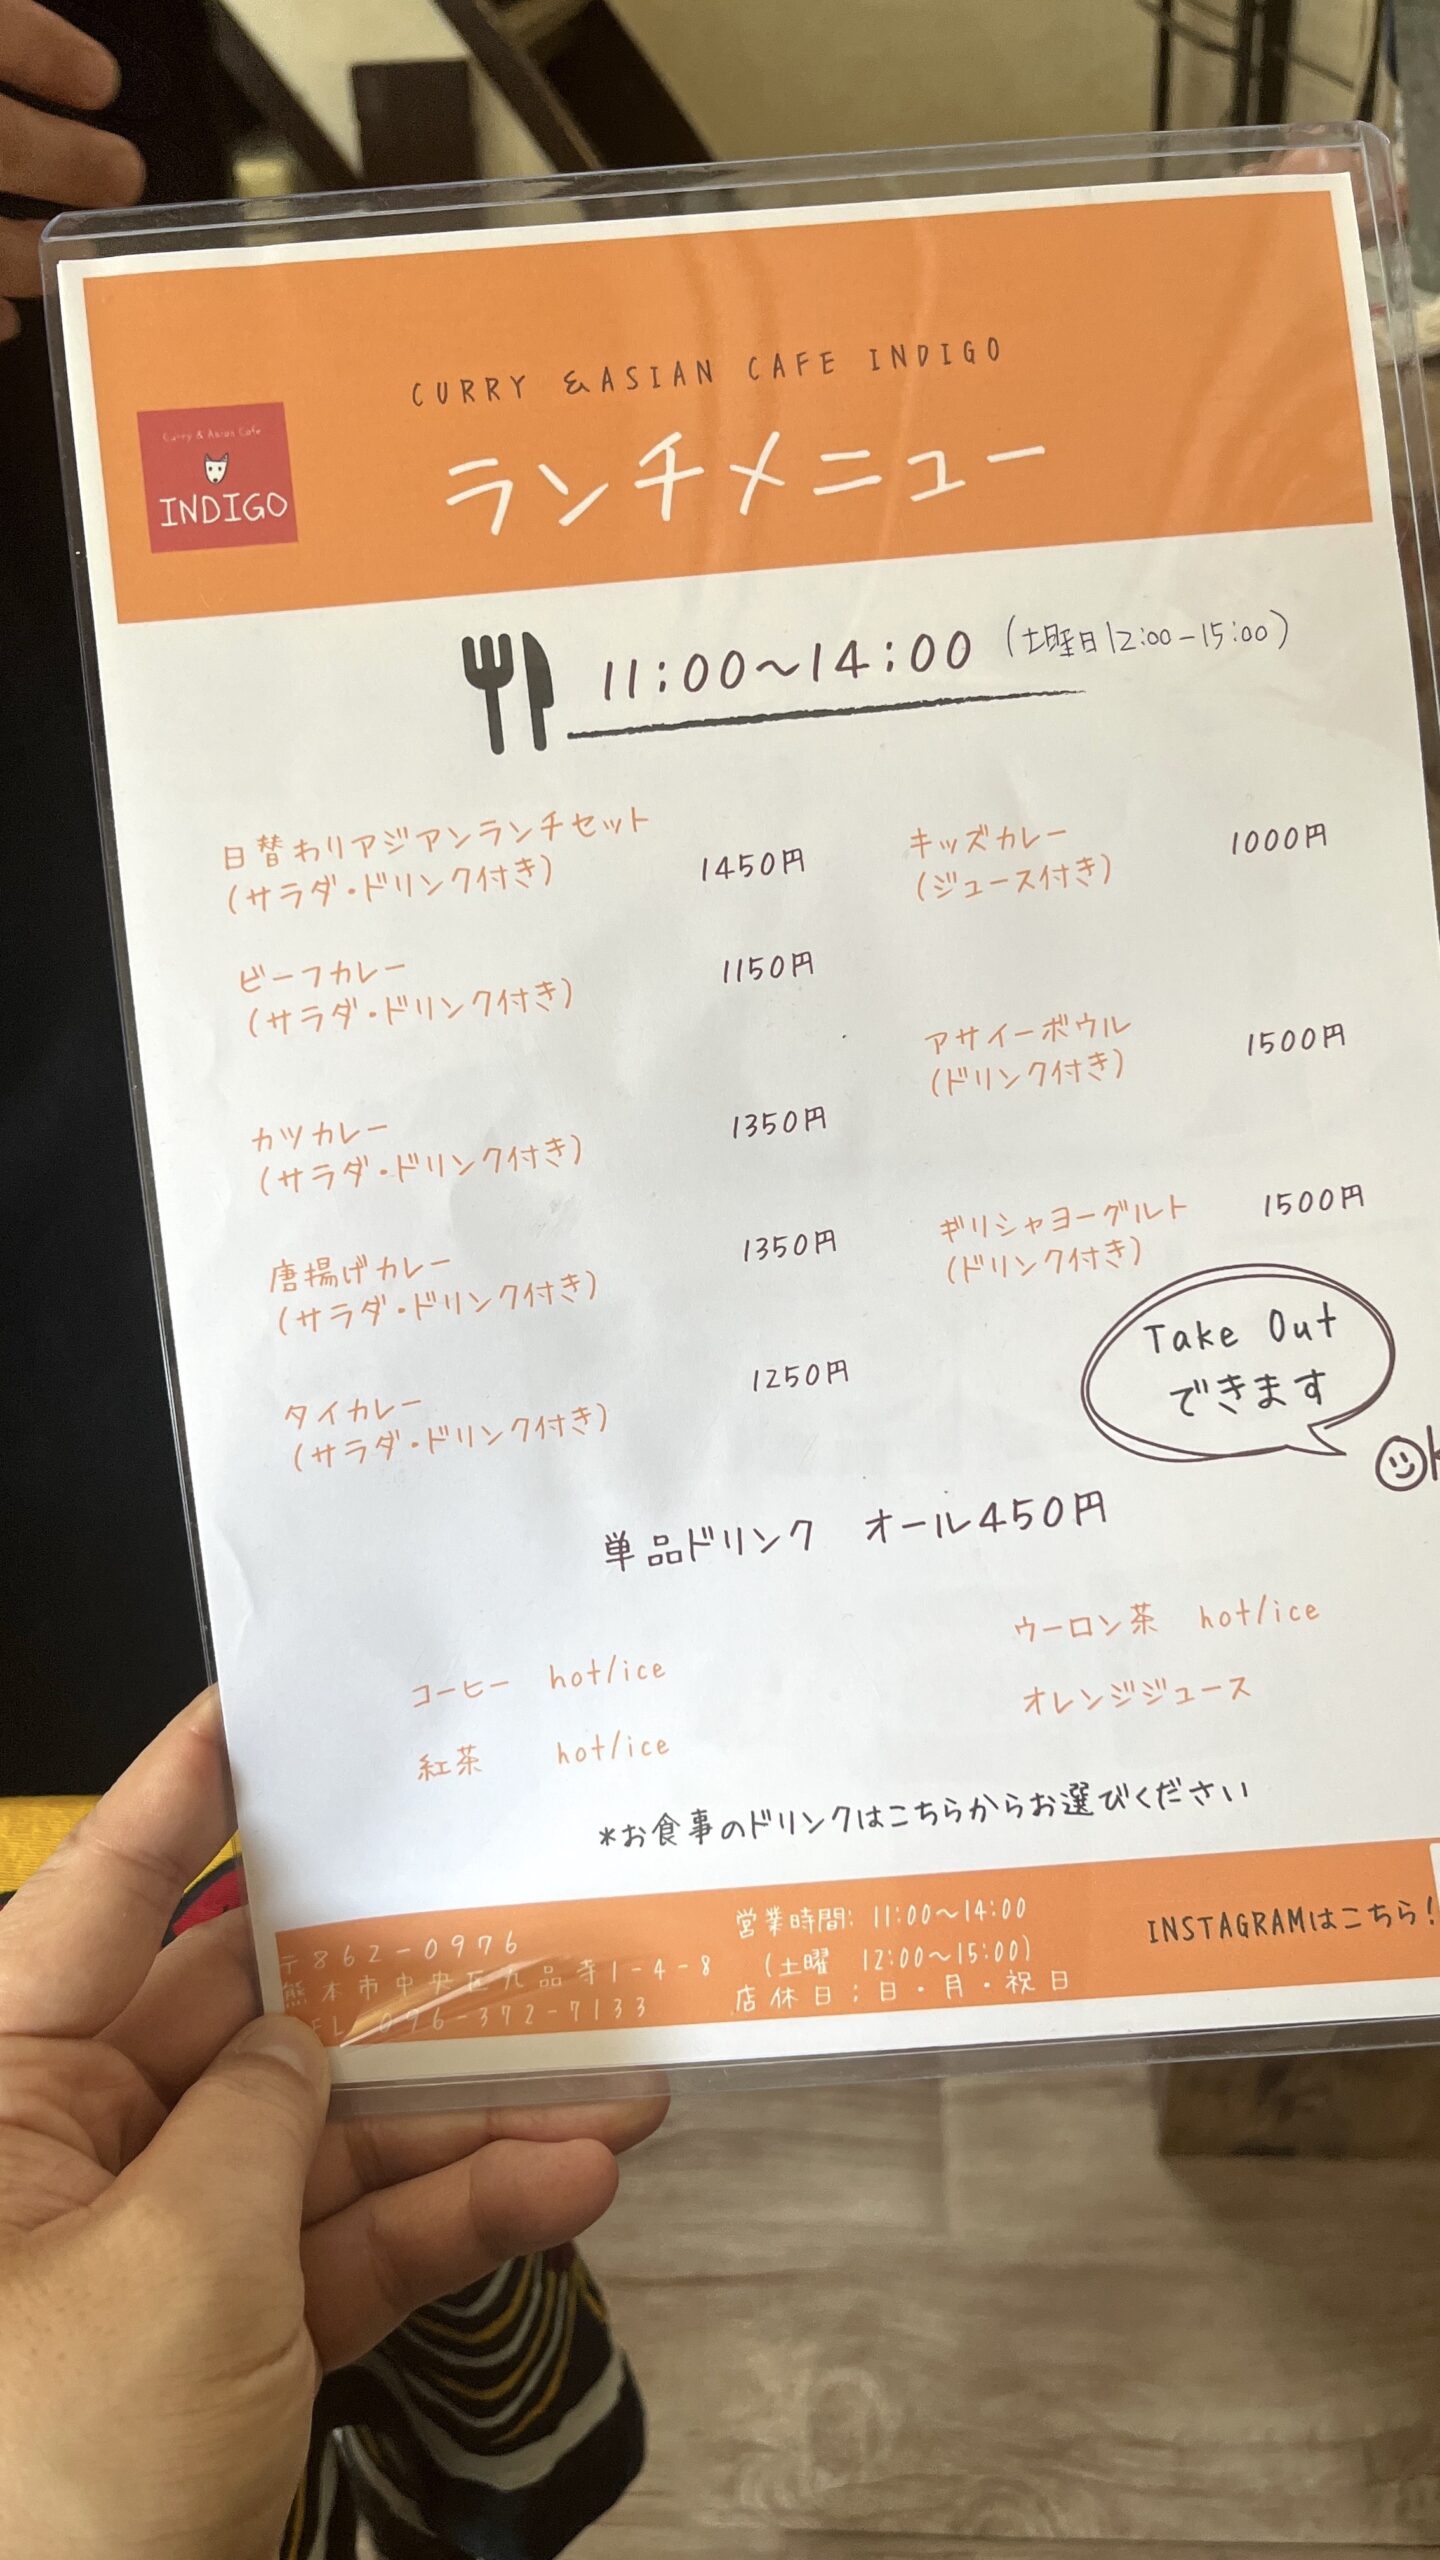 CURRY &ASIAN CAFE INDIGO
Curry & Asian Cafe
INDIGO
ランチメニュー
11:00〜14:00 (土曜日12:00-15:00)
日替わりアジアンランチセット
(サラダ・ドリンク付き) 1450円
ビーフカレー 1150円
(サラダ・ドリンク付き)
カツカレー 1350円
(サラダ・ドリンク付き)
唐揚げカレー 1350円
(サラダ・ドリンク付き)
タイカレー 1250円
(サラダ・ドリンク付き)
キッズカレー 1000円
(ジュース付き)
アサイーボウル 1500円
(ドリンク付き)
ギリシャヨーグルト 1500円
(ドリンク付き)
Take Out
できます
単品ドリンク オール450円
コーヒー hot/ice
紅茶 hot/ice
ウーロン茶 hot/ice
オレンジジュース
*お食事のドリンクはこちらからお選びください
〒862-0976
熊本市中央区九品寺1-4-8
TEL 096-372-7133
営業時間: 11:00〜14:00
(土曜 12:00〜15:00)
店休日:日・月・祝日
INSTAGRAMはこちら!